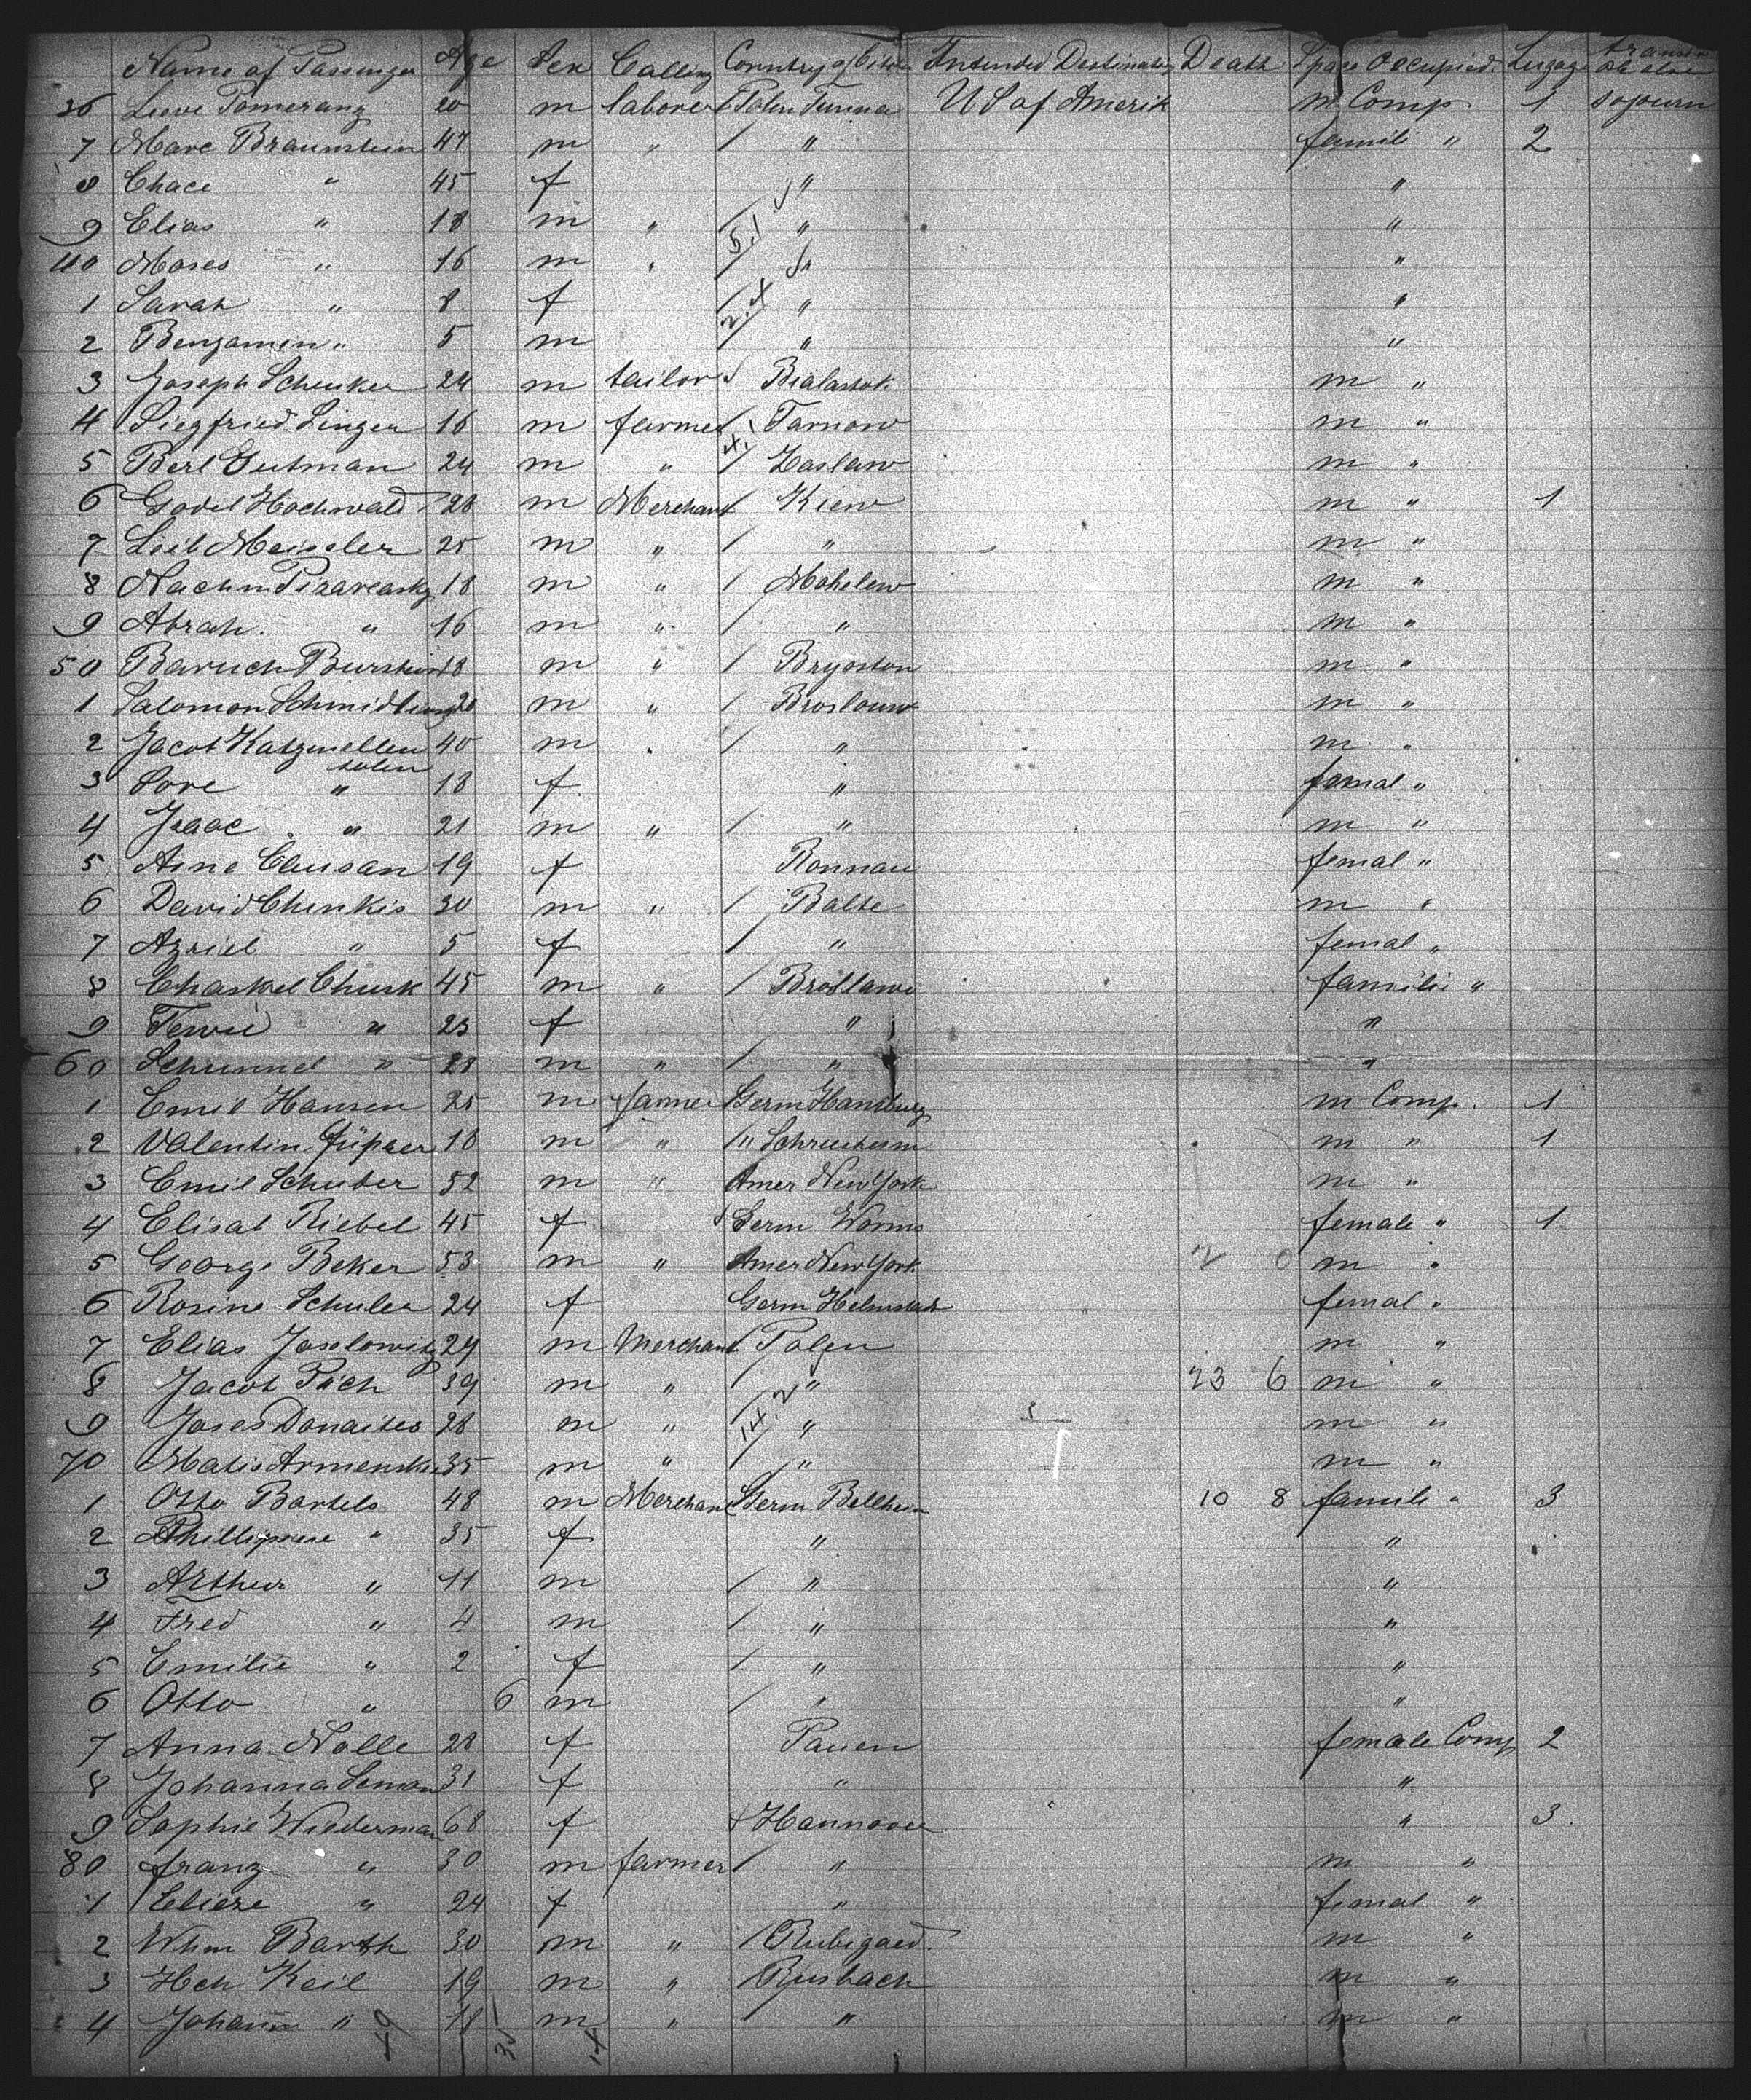 Name of Passenger Age Sex Calling Country of Citiz Intended Destination Death Space Occupied. Lugage
36 20 m laborer Polen U S of Amerik m Comp. 1 sojourn
7 Marc Braunstein 47 m " " famili " 2
8 Chace " 45 f " "
9 Elias " 18 m " " "
40 Moses " 16 m " " "
1 Sarah " 8 f " "
2 Benjamin " 5 m " "
3 Joseph Schenker 24 m tailor Bialastok m "
4 Siegfried Singer 16 m farmer Tarnow m "
5 Berl Gutman 24 m " Zaslaw m "
6 Godel Hochwald 28 m Merchant Kiew m " 1
7 Leib Meiseler 25 m " " m "
8 18 m " Mohelew m "
9 Abrah. " 16 m " " m "
50 Baruch Burstein 18 m " m "
1 Salomon 20 m " m "
2 Jacob Katzenellen 40 m " " m "
solen
3 Sore " 18 f " femal "
4 Isaac " 21 m " " m "
5 19 f Ronnau femal "
6 David Chinkis 30 m " Balte m "
7 Azriel " 5 f " femal "
8 Chaskel Chusk 45 m " familie "
9 " 23 f " "
60 " 28 m " " "
1 Emil Hansen 25 m farmer Germ Hamburg m Comp. 1
2 Valentin 18 m " " m " 1
3 Emil Schuster 52 m " Amer New York m "
4 Elisab Riebel 45 f Germ Worms female " 1
5 George Beker 53 m " Amer New York 2 0 m "
6 Rosine Schuler 24 f Germ femal "
7 Elias Joselowitz 24 m Merchant Polen m "
8 Jacob 39 m " " 23 6 m "
9 28 m " 14.2 " m "
70 Matis Armenskie 35 m " " m "
1 Otto Bartels 48 m Merchant Germ Bellheim 10 8 famili " 3
2 " 35 f " "
3 Arthur " 11 m " "
4 Fred " 4 m " "
5 Emilie " 2 f " "
6 Otto " 6 m " "
7 Anna Nolle 28 f female Comp 2
8 Johanna Leman 31 f " "
9 Sophie Wiederman 68 f Hannover " 3
80 franz " 30 m farmer " m "
1 " 24 f " femal "
2 Whm Barth 30 m " m "
3 Hch Keil 19 m " Rusbach m "
4 Johann " 18 m " " m "